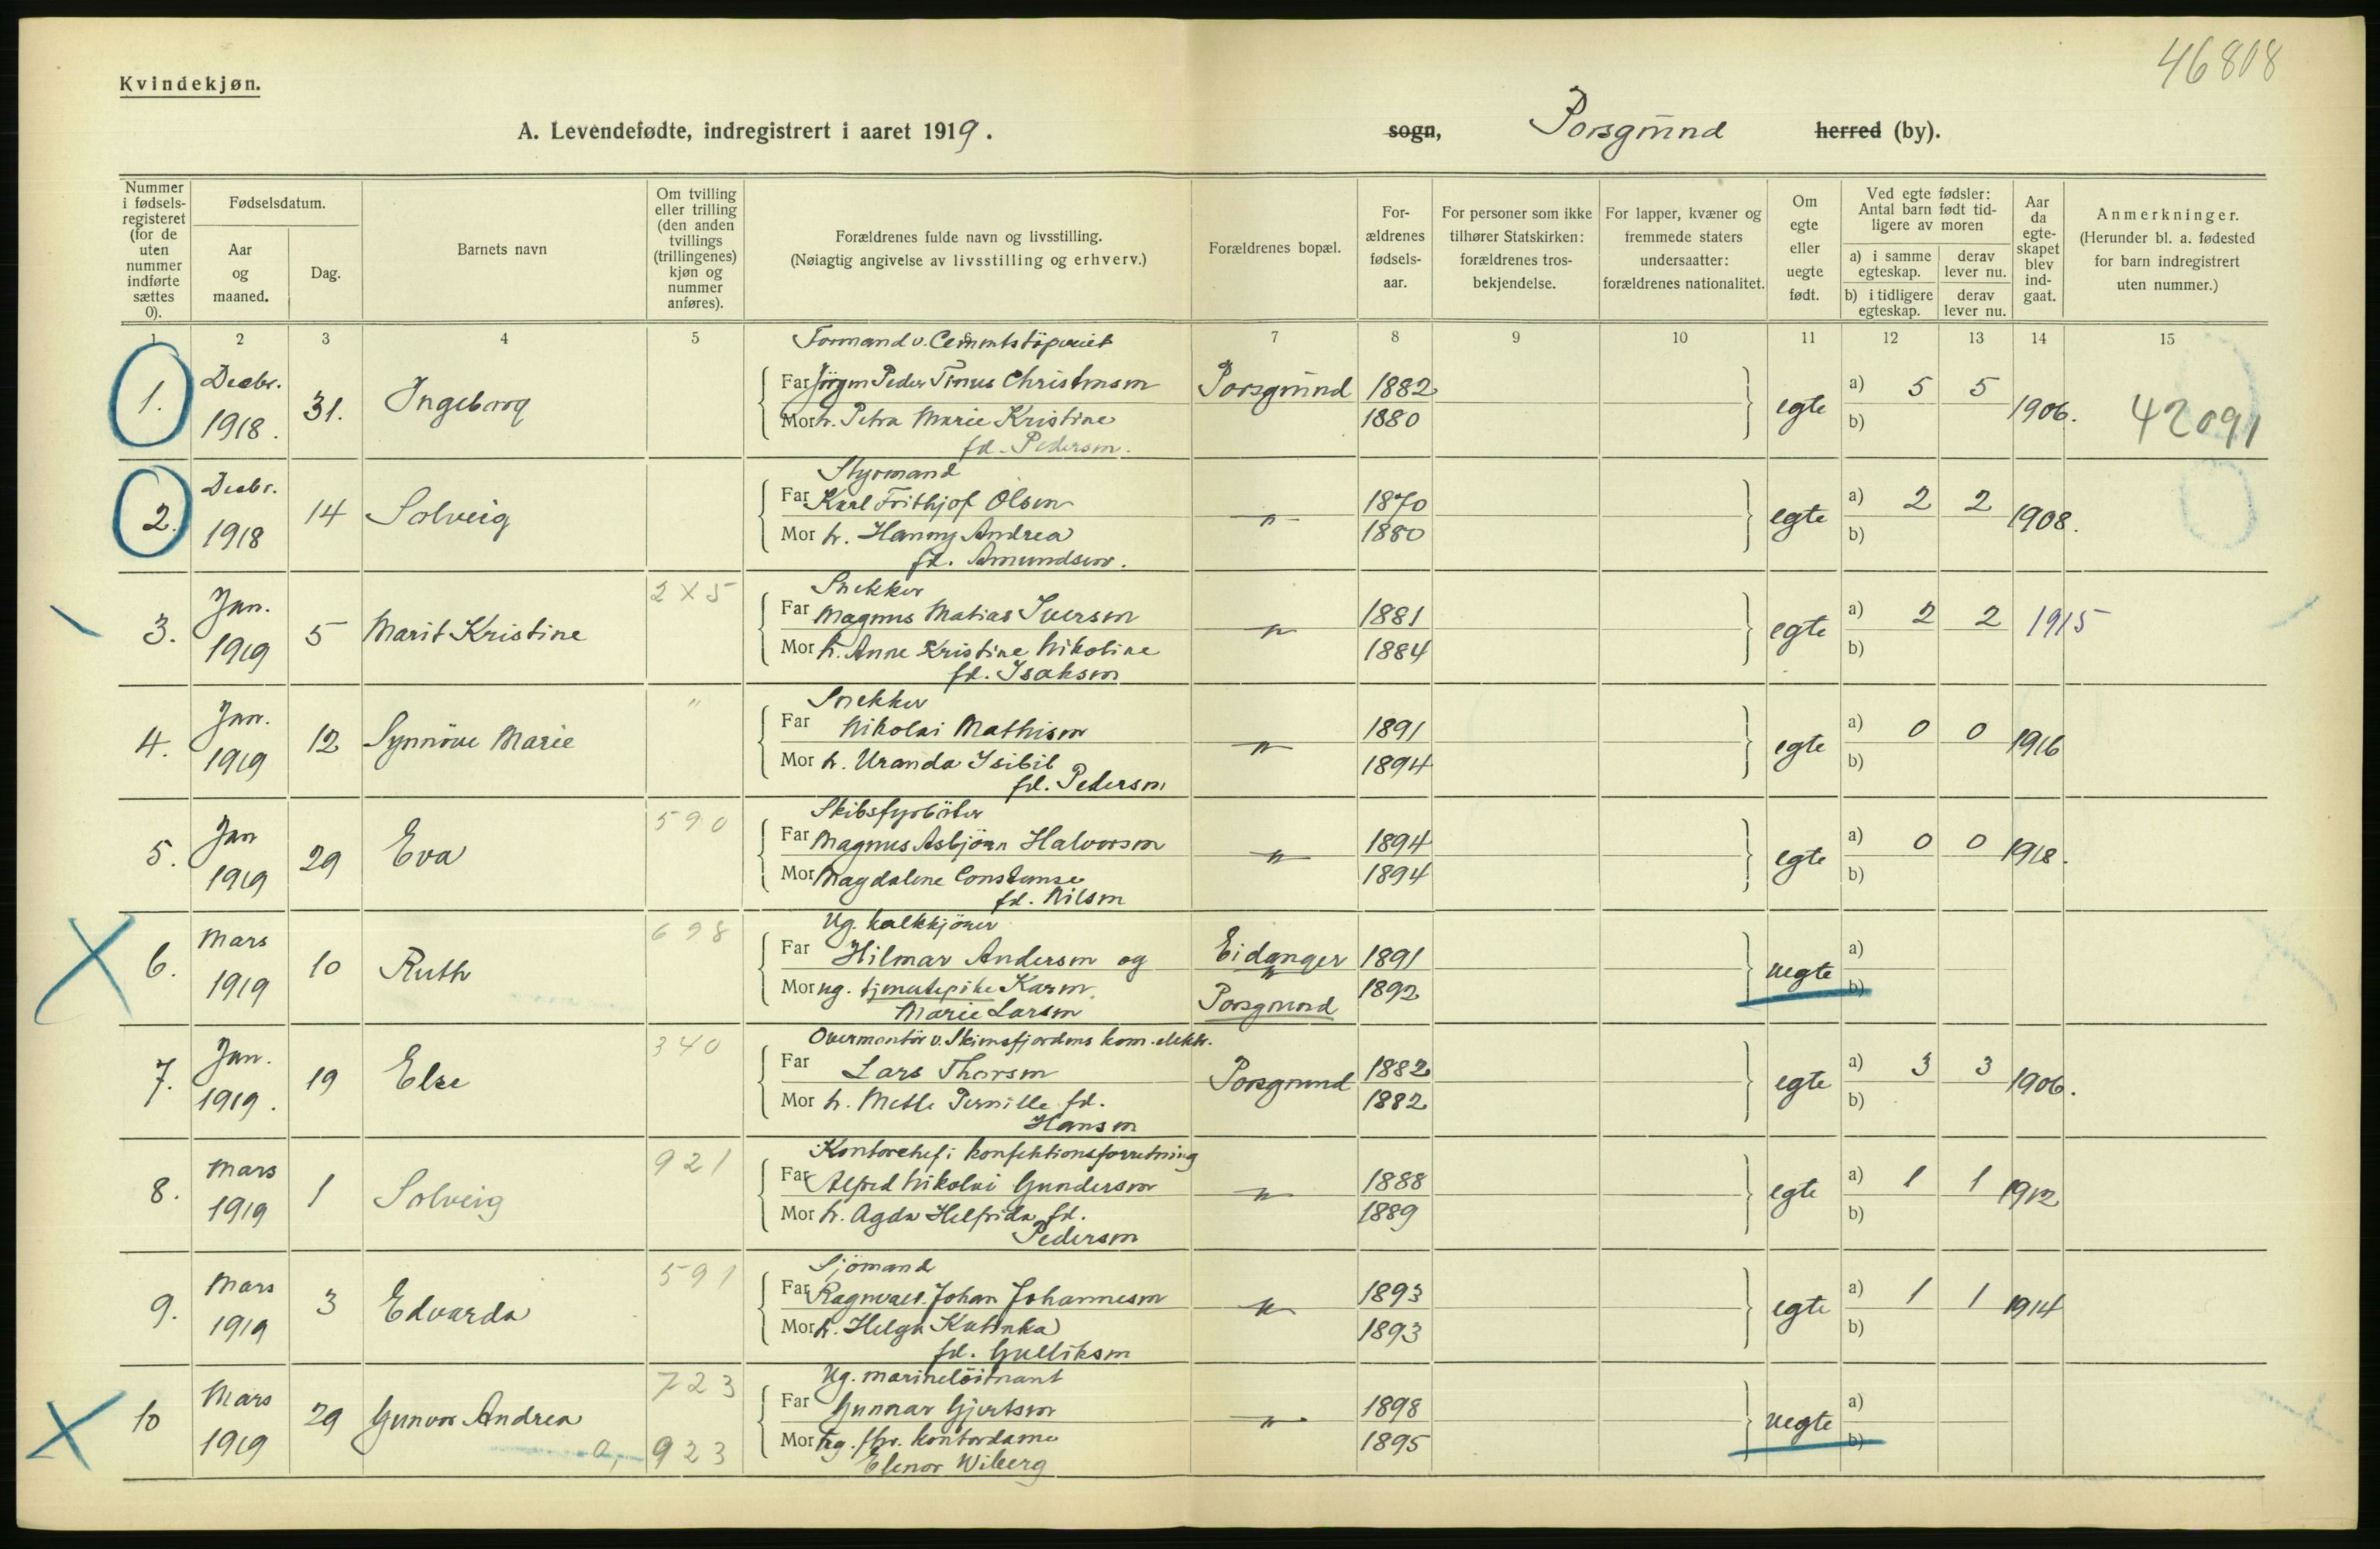 46808
Kvindekjøn.
A. Levendefødte, indregistrert i aaret 1919. sogn, Porsgrund herred (by).
Nummer i fødselsregisteret (for de uten nummer indførte sættes 0).
Fødselsdatum.
Aar og maaned.
Dag.
Barnets navn
Om tvilling eller trilling (den anden tvillings (trillingenes) kjøn og nummer anføres).
Forældrenes fulde navn og livsstilling.
(Nøiagtig angivelse av livsstilling og erhverv.)
Forældrenes bopæl.
Forældrenes fødselsaar.
For personer som ikke tilhører Statskirken: forældrenes trosbekjendelse.
For lapper, kvæner og fremmede staters undersaatter: forældrenes nationalitet.
Om egte eller uegte født.
Ved egte fødsler: Antal barn født tidligere av moren
a) i samme egteskap. derav lever nu.
b) i tidligere egteskap. derav lever nu.
Aar da egteskapet blev indgaat.
Anmerkninger.
(Herunder bl. a. fødested for barn indregistrert uten nummer.)
1 2 3 4 5 7 8 9 10 11 12 13 14 15
Formand v. Cementstöperiet
1. Decbr. 1918. 31. Ingeborg
Far Jörgen Peder Tinus Christensen Porsgrund 1882
Mor h. Petra Marie Kristine 1880
fd. Pedersen.
egte a) 5 5 b) 1906. 42091
Styrmand
2. Decbr. 1918 14 Solveig
Far Karl Frithjof Olsen " 1870
Mor h. Hanny Andrea 1880
fd. Amundsen.
egte a) 2 2 b) 1908.
2 X 5 Snekker
3. Jan. 1919 5 Marit Kristine
Far Magnus Matias Iversen " 1881
Mor h. Anne Kristine Nikoline 1884
fd. Isaksen
egte a) 2 2 b) 1915
" Snekker
4. Jan. 1919 12 Synnöve Marie
Far Nikolai Mathisen " 1891
Mor h. Uranda Isibil 1894
fd. Pedersen
egte a) 0 0 b) 1916
590 Skibsfyrböter
5. Jan 1919 29 Eva
Far Magnus Asbjörn Halvorsen " 1894
Mor Magdalene Constanse 1894
fd. Nilsen
egte a) 0 0 b) 1918.
698 Ug. kalkkjörer
6. Mars 1919 10 Ruth
Far Hilmar Andersen og Eidanger 1891
Mor ug. tjenestepike Karen Porsgrund 1892
Marie Larsen
uegte a) b)
340 Overmontör v. Skiensfjordens kom. elektr.
7. Jan. 1919. 19 Else
Far Lars Thorsen Porsgrund 1882
Mor h. Mette Pernille fd. 1882
Hansen
egte a) 3 3 b) 1906.
921 Kontorchef i konfektionsforretning
8. Mars 1919 1 Solveig
Far Alfred Nikolai Gundersen " 1888
Mor h. Agda Helfrida fd. 1889
Pedersen
egte a) 1 1 b) 1912
591 Sjömand
9. Mars 1919 3 Edvarda
Far Ragnvald Johan Johannesen " 1893
Mor h. Helga Katinka 1893
fd. Gulliksen
egte a) 1 1 b) 1914
723 Ug. marinelöitnant
10 Mars 1919 29 Gunvor Andrea
Far Gunnar Gjertsen " 1898
923 Mor ug. fhv. kontordame 1895
Elenor Wiberg
uegte a) b)